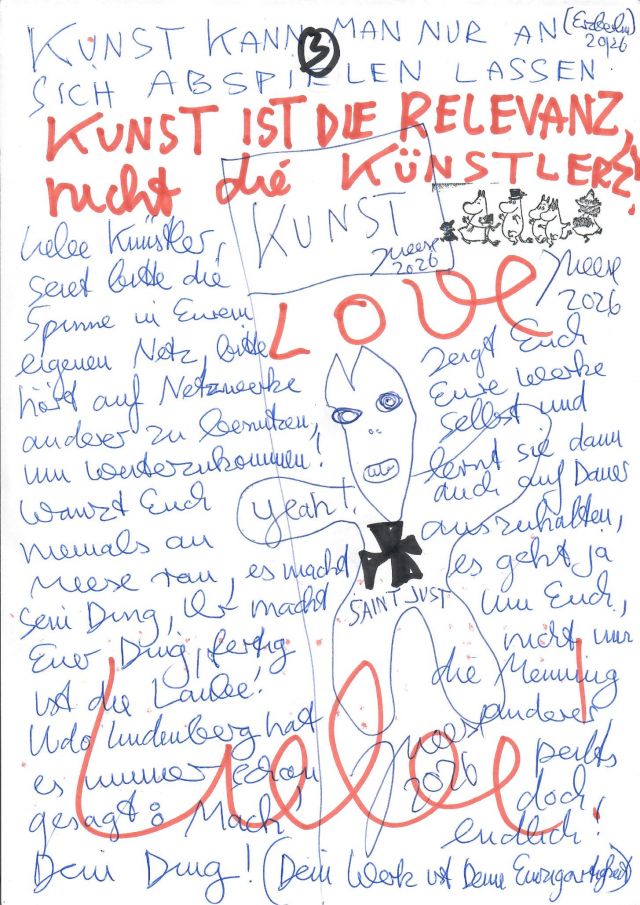 KUNST KANN MAN NUR AN
(Erzberlin)
20/26
3
SICH ABSPIELEN LASSEN.
KUNST IST DIE RELEVANZ,
nicht die KÜNSTLEREI,
KUNST
Meese
2026
Liebe Künstler,
seiet bitte die
Spinne in Eurem
eigenen Netz, bitte
hört auf Netzwerke
anderer zu benutzen,
um weiterzukommen!
Wanzt Euch
niemals an
Meese ran, es macht
sein Ding, Ihr macht
Euer Ding, fertig
ist die Laube!
Udo Lindenberg hat
es immer schon
gesagt: Mach'
Dein Ding! (Dein Werk ist Deine Einzigartigkeit)
LOVE
Meese
2026
yeah!
SAINT JUST
zeigt Euch
Eure Werke
selbst und
lernt sie dann
auch auf Dauer
auszuhalten,
es geht ja
um Euch,
nicht um
die Meinung
anderer
doch
endlich!
Liebe!
Meese
2026